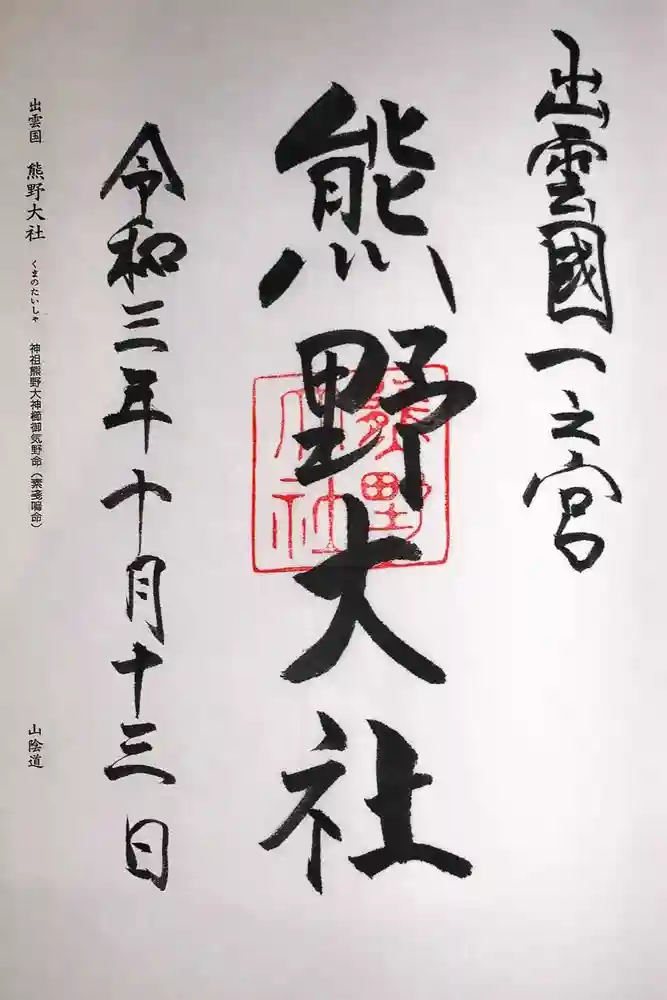 出雲國一之宮
熊野大社
熊野大社
令和三年十月十三日
出雲国 熊野大社 くまのたいしゃ 神祖熊野大神櫛御気野命（素戔嗚命）
山陰道